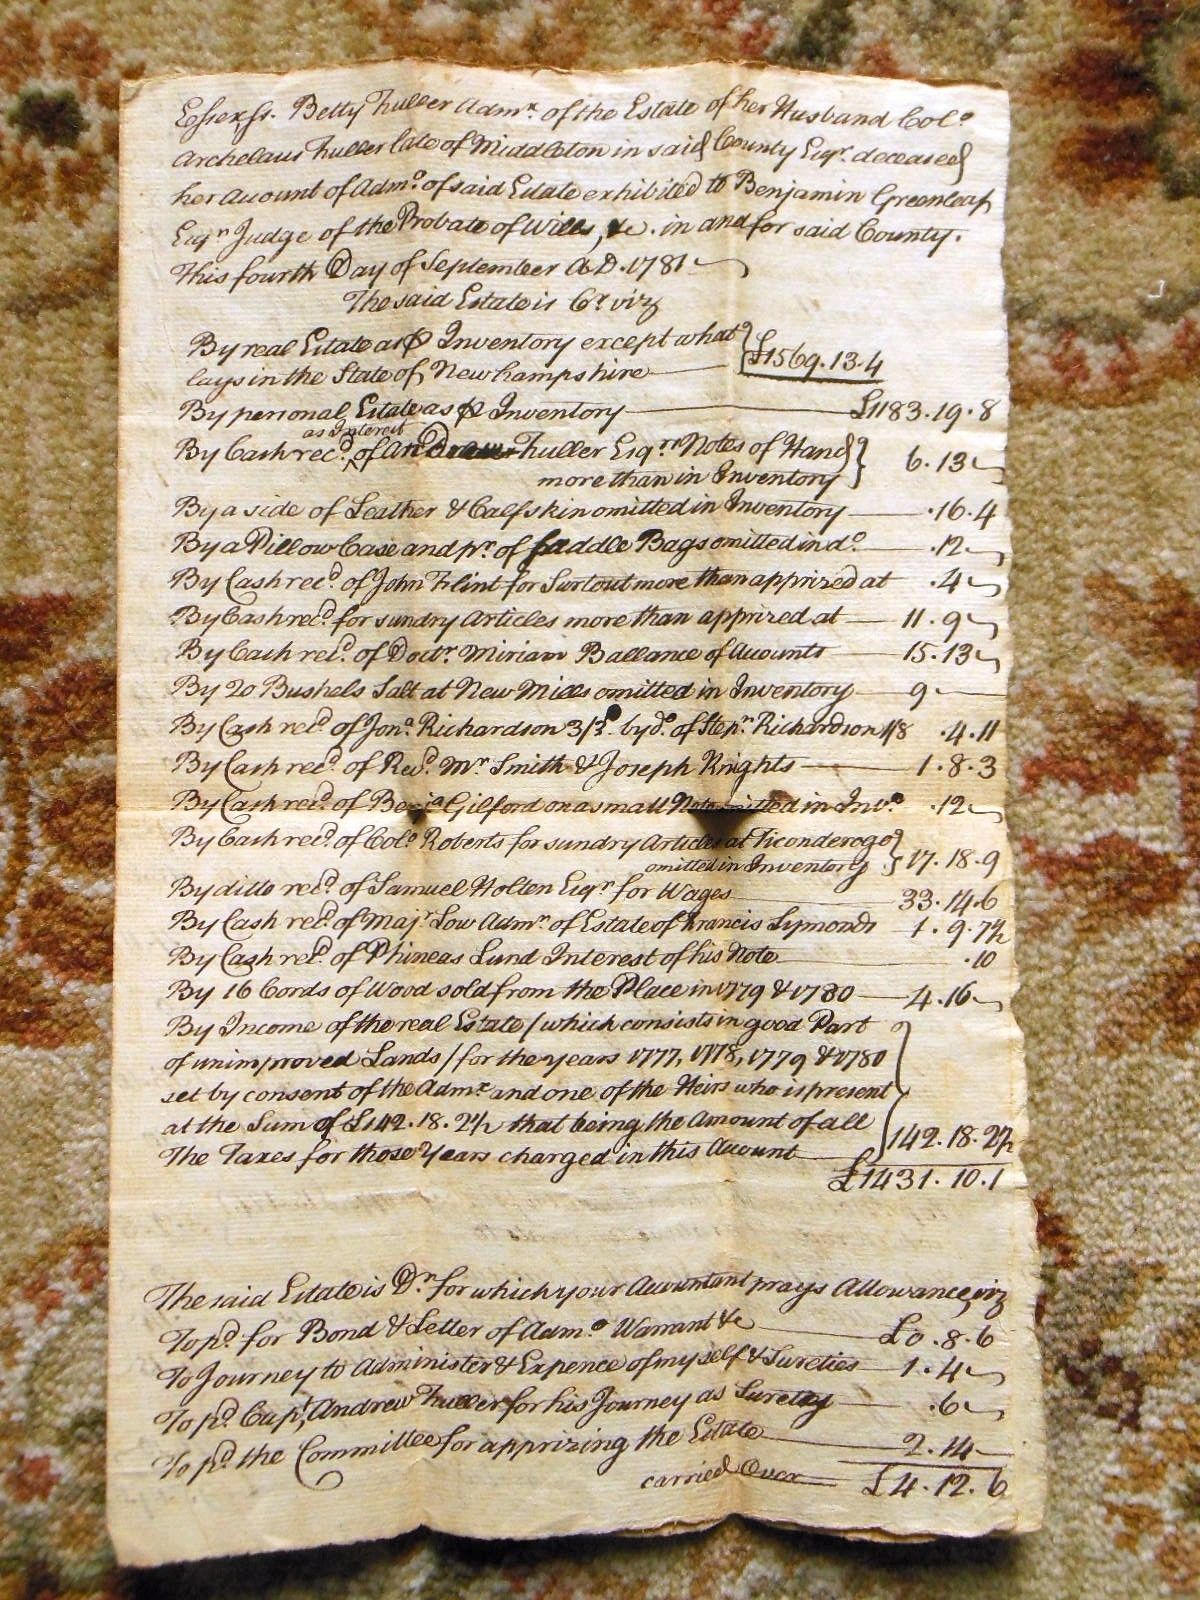 Essex ss. Betty Fuller Admx. of the Estate of her Husband Colo.
Archelaus Fuller late of Middleton in said County Esqr. deceased
her Acount of Admo. of said Estate exhibited to Benjamin Greenleaf
Esqr. Judge of the Probate of Wills, &c. in and for said County.
This fourth Day of September A.D. 1781
The said Estate is Cr. viz
By real Estate as ⅌ Inventory except what
lays in the State of Newhampshire £1569.13.4
By personal Estate as ⅌ Inventory £1183.19.8
as Interest
By Cash recd. of Andrew Fuller Esqr. Notes of Hand
more than in Inventory 6.13
By a side of Leather & Calfskin omitted in Inventory .16.4
By a Pillow Case and pr. of Saddle Bags omitted in do. .12
By Cash recd. of John Flint for Surtout more than apprized at .4
By Cash recd. for sundry Articles more than apprized at 11.9
By Cash recd. of Doctr. Miriam Ballance of Acounts 15.13
By 20 Bushels Salt at New Mills omitted in Inventory 9
By Cash recd. of Jona. Richardson 3/3. by do. of Stepn. Richardson 1/8 .4.11
By Cash recd. of Revd. Mr Smith & Joseph Knights 1.8.3
By Cash recd. of Benja. Gilford on a small Note omitted in Invo. .12
By Cash recd. of Colo. Roberts for sundry Articles at Ticonderogo
omitted in Inventory 17.18.9
By ditto recd. of Samuel Holten Esqr. for Wages 33.14.6
By Cash recd. of Majr. Low Admr. of Estate of Francis Symonds 1.9.7½
By Cash recd. of Phineas Lund Interest of his Note .10
By 16 Cords of Wood sold from the Place in 1779 & 1780 4.16
By Income of the real Estate / which consists in good Part
of unimproved Lands / for the years 1777, 1778, 1779 & 1780
set by consent of the Admx. and one of the Heirs who is present
at the Sum of £142.18.2½ that being the Amount of all
The Taxes for those Years charged in this Account 142.18.2½
£1431.10.1
The said Estate is Dr. for which your Acountant prays Allowance, viz
To pd. for Bond & Letter of Admo. Warrant &c £0.8.6
To Journey to Administer & Expence of myself & Sureties 1.4
To pd. Capt. Andrew Fuller for his Journey as Surety .6
To pd. the Committee for apprizing the Estate 2.14
carried Over £4.12.6